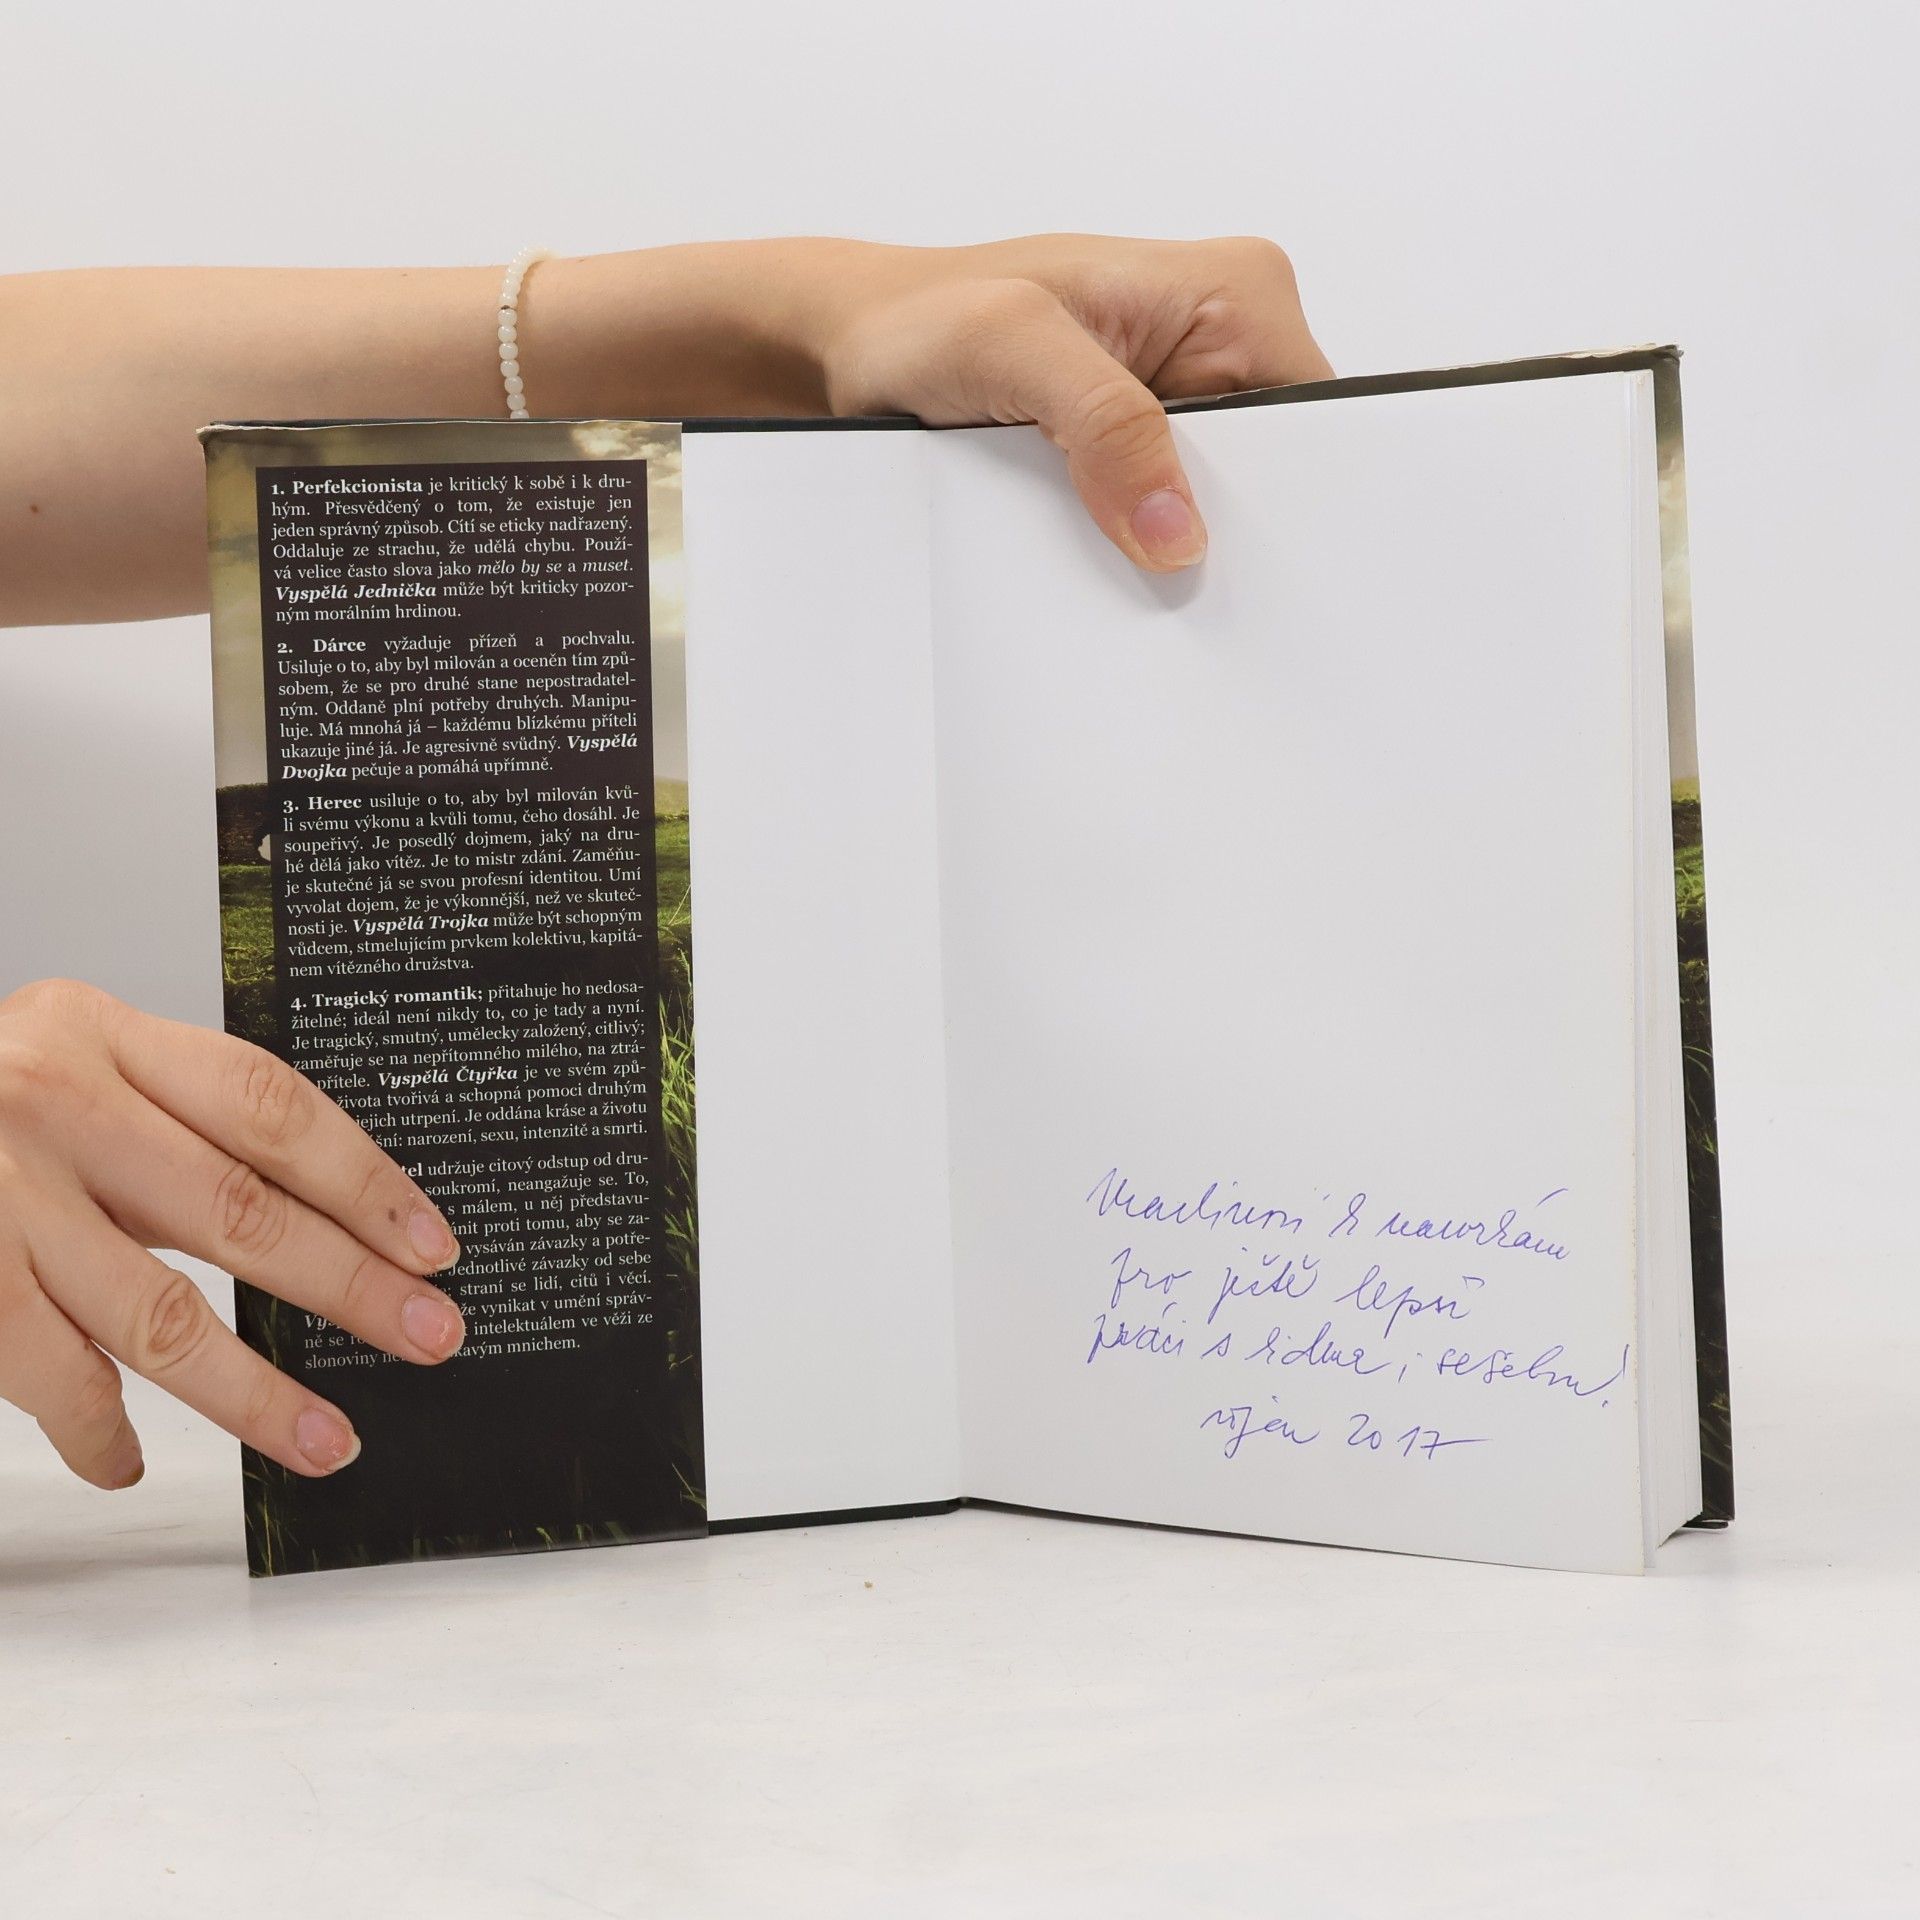 1. Perfekcionista je kritický k sobě i k dru-
hým. Přesvědčený o tom, že existuje jen
jeden správný způsob. Cítí se eticky nadřazený.
Oddaluje ze strachu, že udělá chybu. Použí-
vá velice často slova jako mělo by se a muset.
Vyspělá Jednička může být kriticky pozor-
ným morálním hrdinou.
2. Dárce vyžaduje přízeň a pochvalu.
Usiluje o to, aby byl milován a oceněn tím způ-
sobem, že se pro druhé stane nepostradatel-
ným. Oddaně plní potřeby druhých. Manipu-
luje. Má mnohá já – každému blízkému příteli
ukazuje jiné já. Je agresivně svůdný. Vyspělá
Dvojka pečuje a pomáhá upřímně.
3. Herec usiluje o to, aby byl milován kvů-
li svému výkonu a kvůli tomu, čeho dosáhl. Je
soupeřivý. Je posedlý dojmem, jaký na dru-
hé dělá jako vítěz. Je to mistr zdání. Zaměňu-
je skutečné já se svou profesní identitou. Umí
vyvolat dojem, že je výkonnější, než ve skuteč-
nosti je. Vyspělá Trojka může být schopným
vůdcem, stmelujícím prvkem kolektivu, kapitá-
nem vítězného družstva.
4. Tragický romantik; přitahuje ho nedosa-
žitelné; ideál není nikdy to, co je tady a nyní.
Je tragický, smutný, umělecky založený, citlivý;
zaměřuje se na nepřítomného milého, na ztrá-
přítele. Vyspělá Čtyřka je ve svém způ-
života tvořivá a schopná pomoci druhým
jejich utrpení. Je oddána kráse a životu
šní: narození, sexu, intenzitě a smrti.
tel udržuje citový odstup od dru-
soukromí, neangažuje se. To,
s málem, u něj představu-
ánit proti tomu, aby se za-
vysáván závazky a potře-
Jednotlivé závazky od sebe
straní se lidí, citů i věcí.
že vynikat v umění správ-
ně se intelektuálem ve věži ze
slonoviny kavým mnichem.
k
pro ještě lepší
práci s i se sebou!
říjen 2017